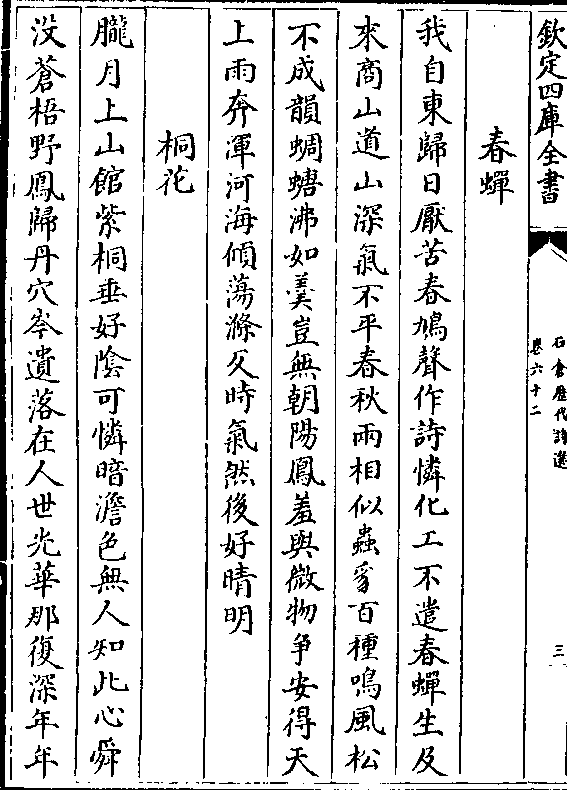 欽定四庫全書
石倉歷代詩選
卷六十二
三
春蟬
我自東歸日厭苦春鳩聲作詩憐化工不遣春蟬生及
來商山道山深氣不平春秋兩相似蟲豸百種鳴風松
不成韻蜩螗沸如羮豈無朝陽鳳羞與微物爭安得天
上雨奔渾河海傾蕩滌反時氣然後好晴明
桐花
朧月上山館紫桐垂好陰可憐暗澹色無人知此心舜
没蒼梧野鳳歸丹穴岑遺落在人世光華那復深年年